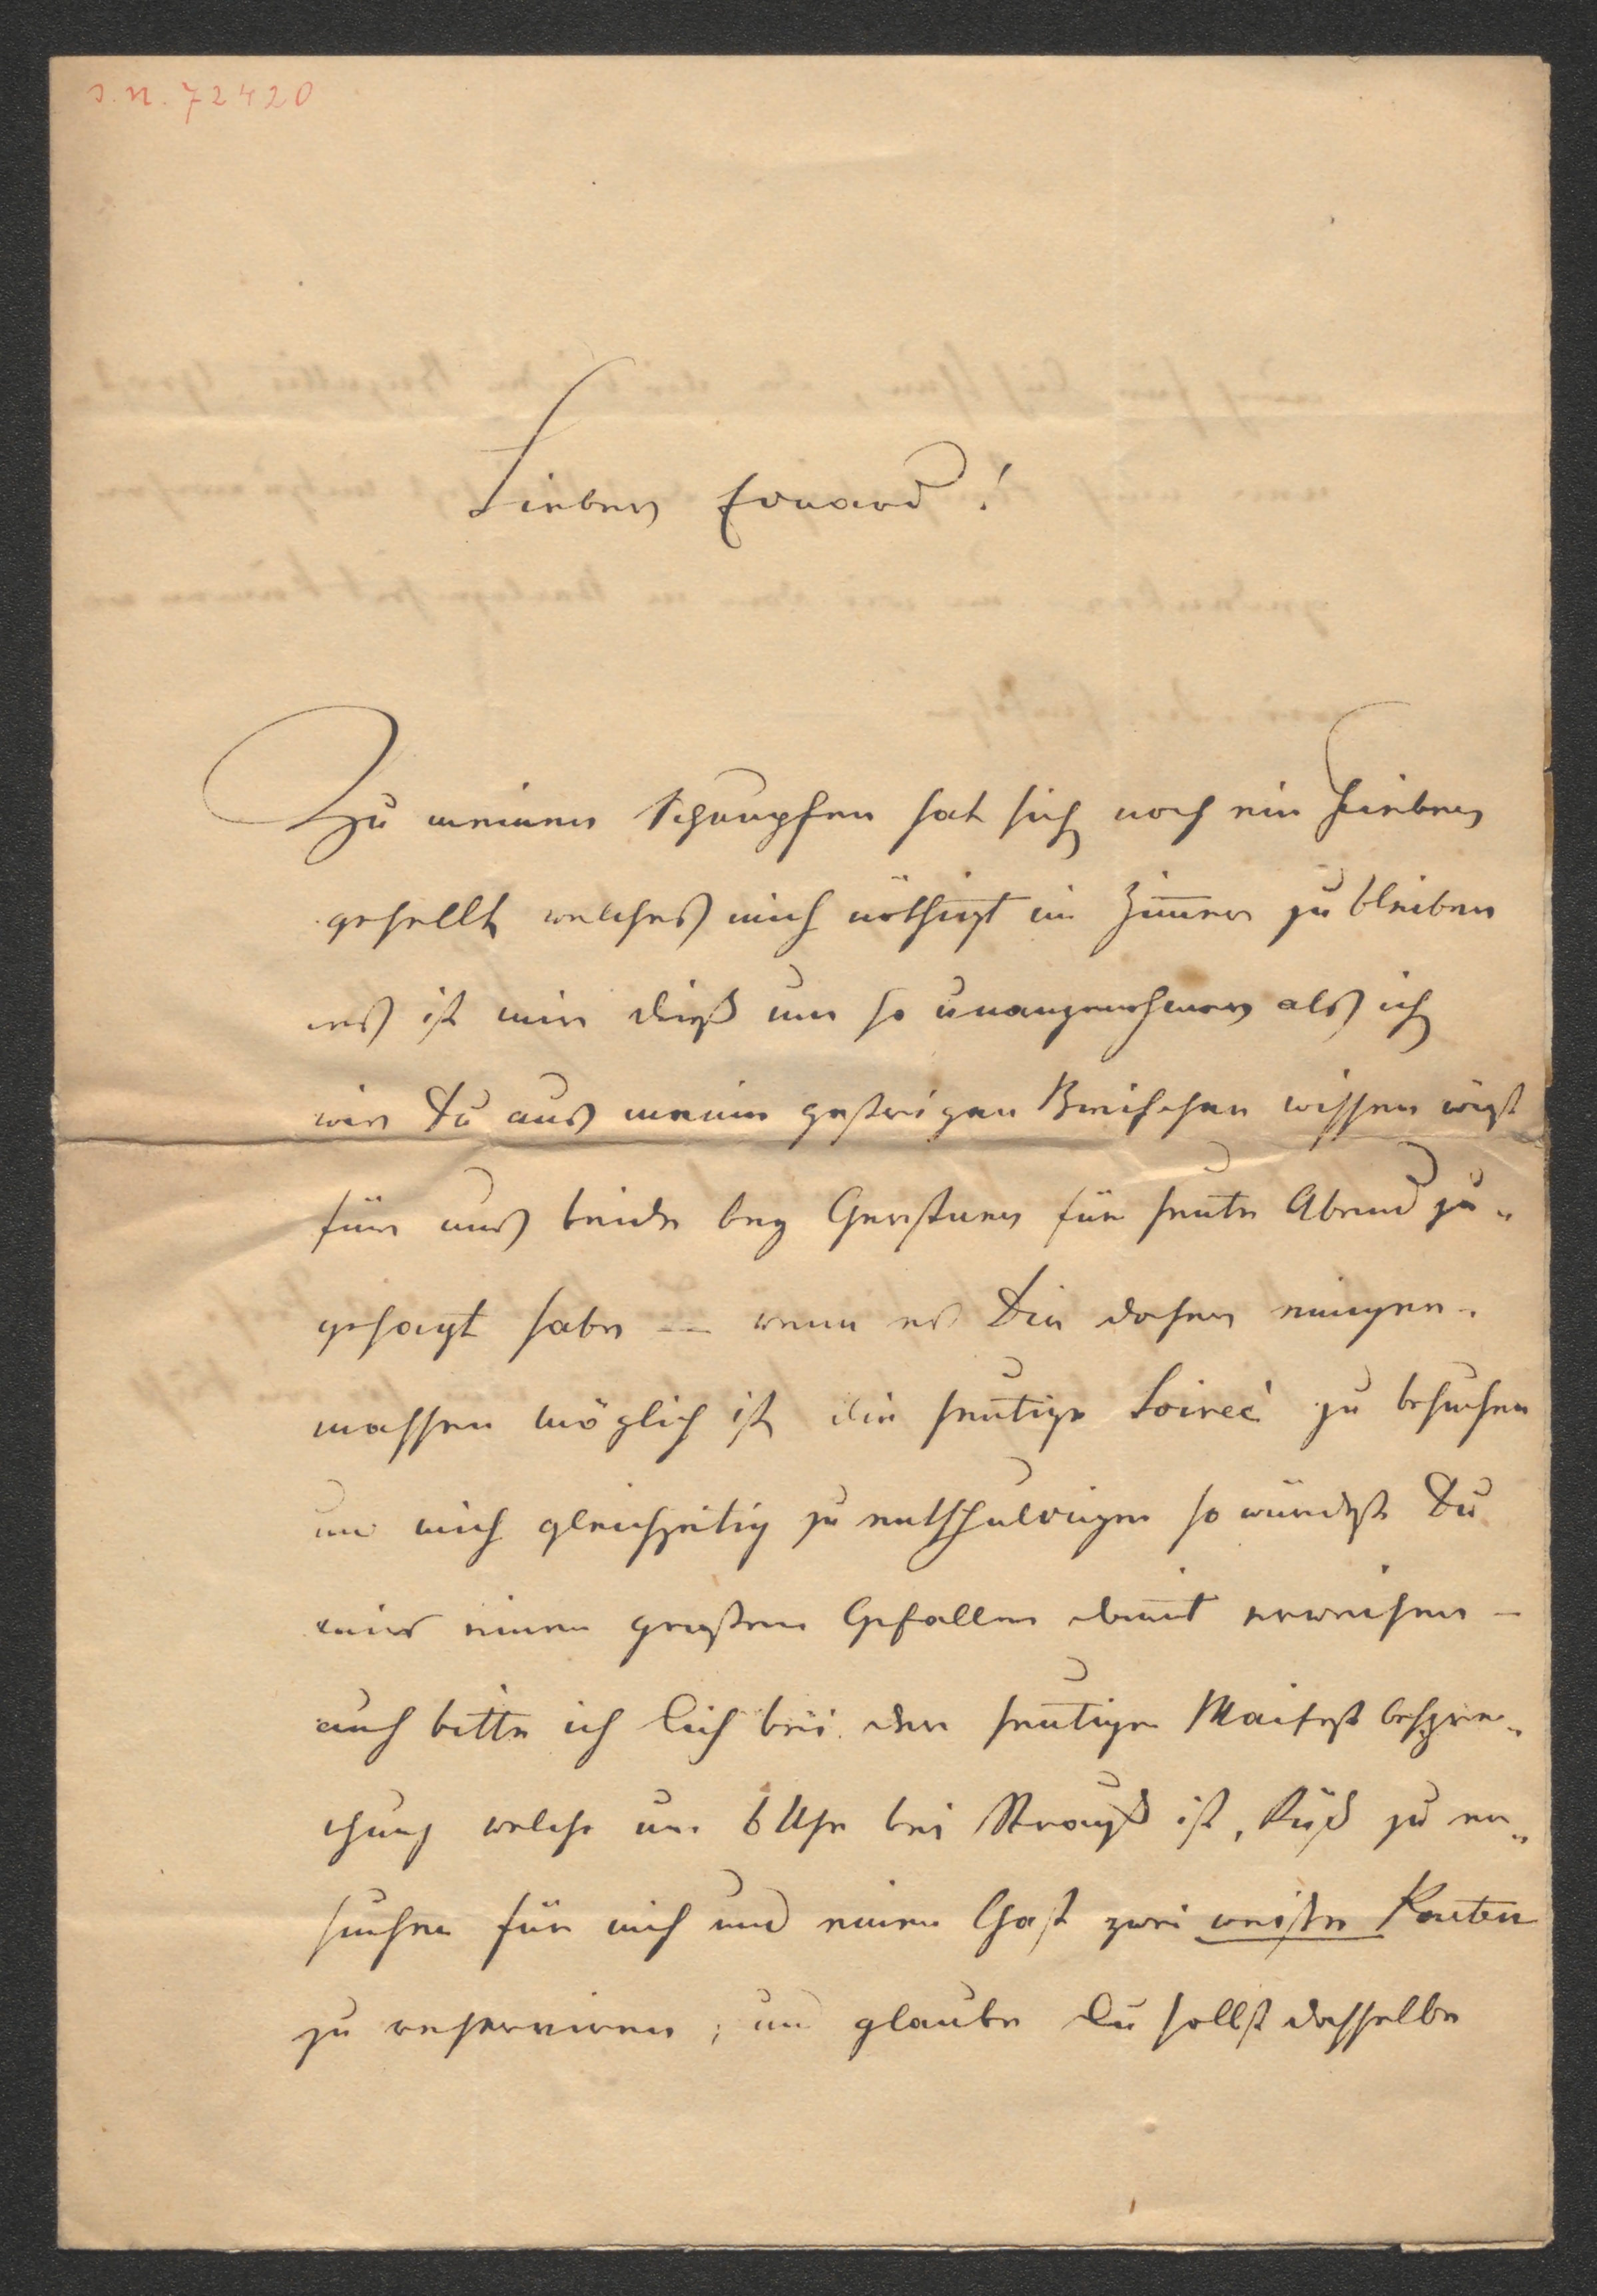 J. N. 72420
Lieber Eduard!
Zu meinem Schnupfen hat sich noch ein Fieber
gesellt welches mich nöthigt im Zimmer zu bleiben
es ist mir dieß um so unangenehmer als ich
wie Du aus meinem gestrigen Briefchen wissen wirst
für uns beide bey Gerstner für heute Abend zu„
gesagt habe — wenn es Dir daher einiger„
massen möglich ist die heutige Soireé zu besuchen
um mich gleichzeitig zu entschuldigen so würdest Du
mir einen großen Gefallen damit erweisen —
auch bitte ich Dich bei der heutigen Maifest bespre„
chung welche um 6 Uhr bei Strauß ist, Rüß zu er„
suchen für mich und einen Gast zwei weiße Karten
zu reserviren; und glaube Du sollst dasselbe